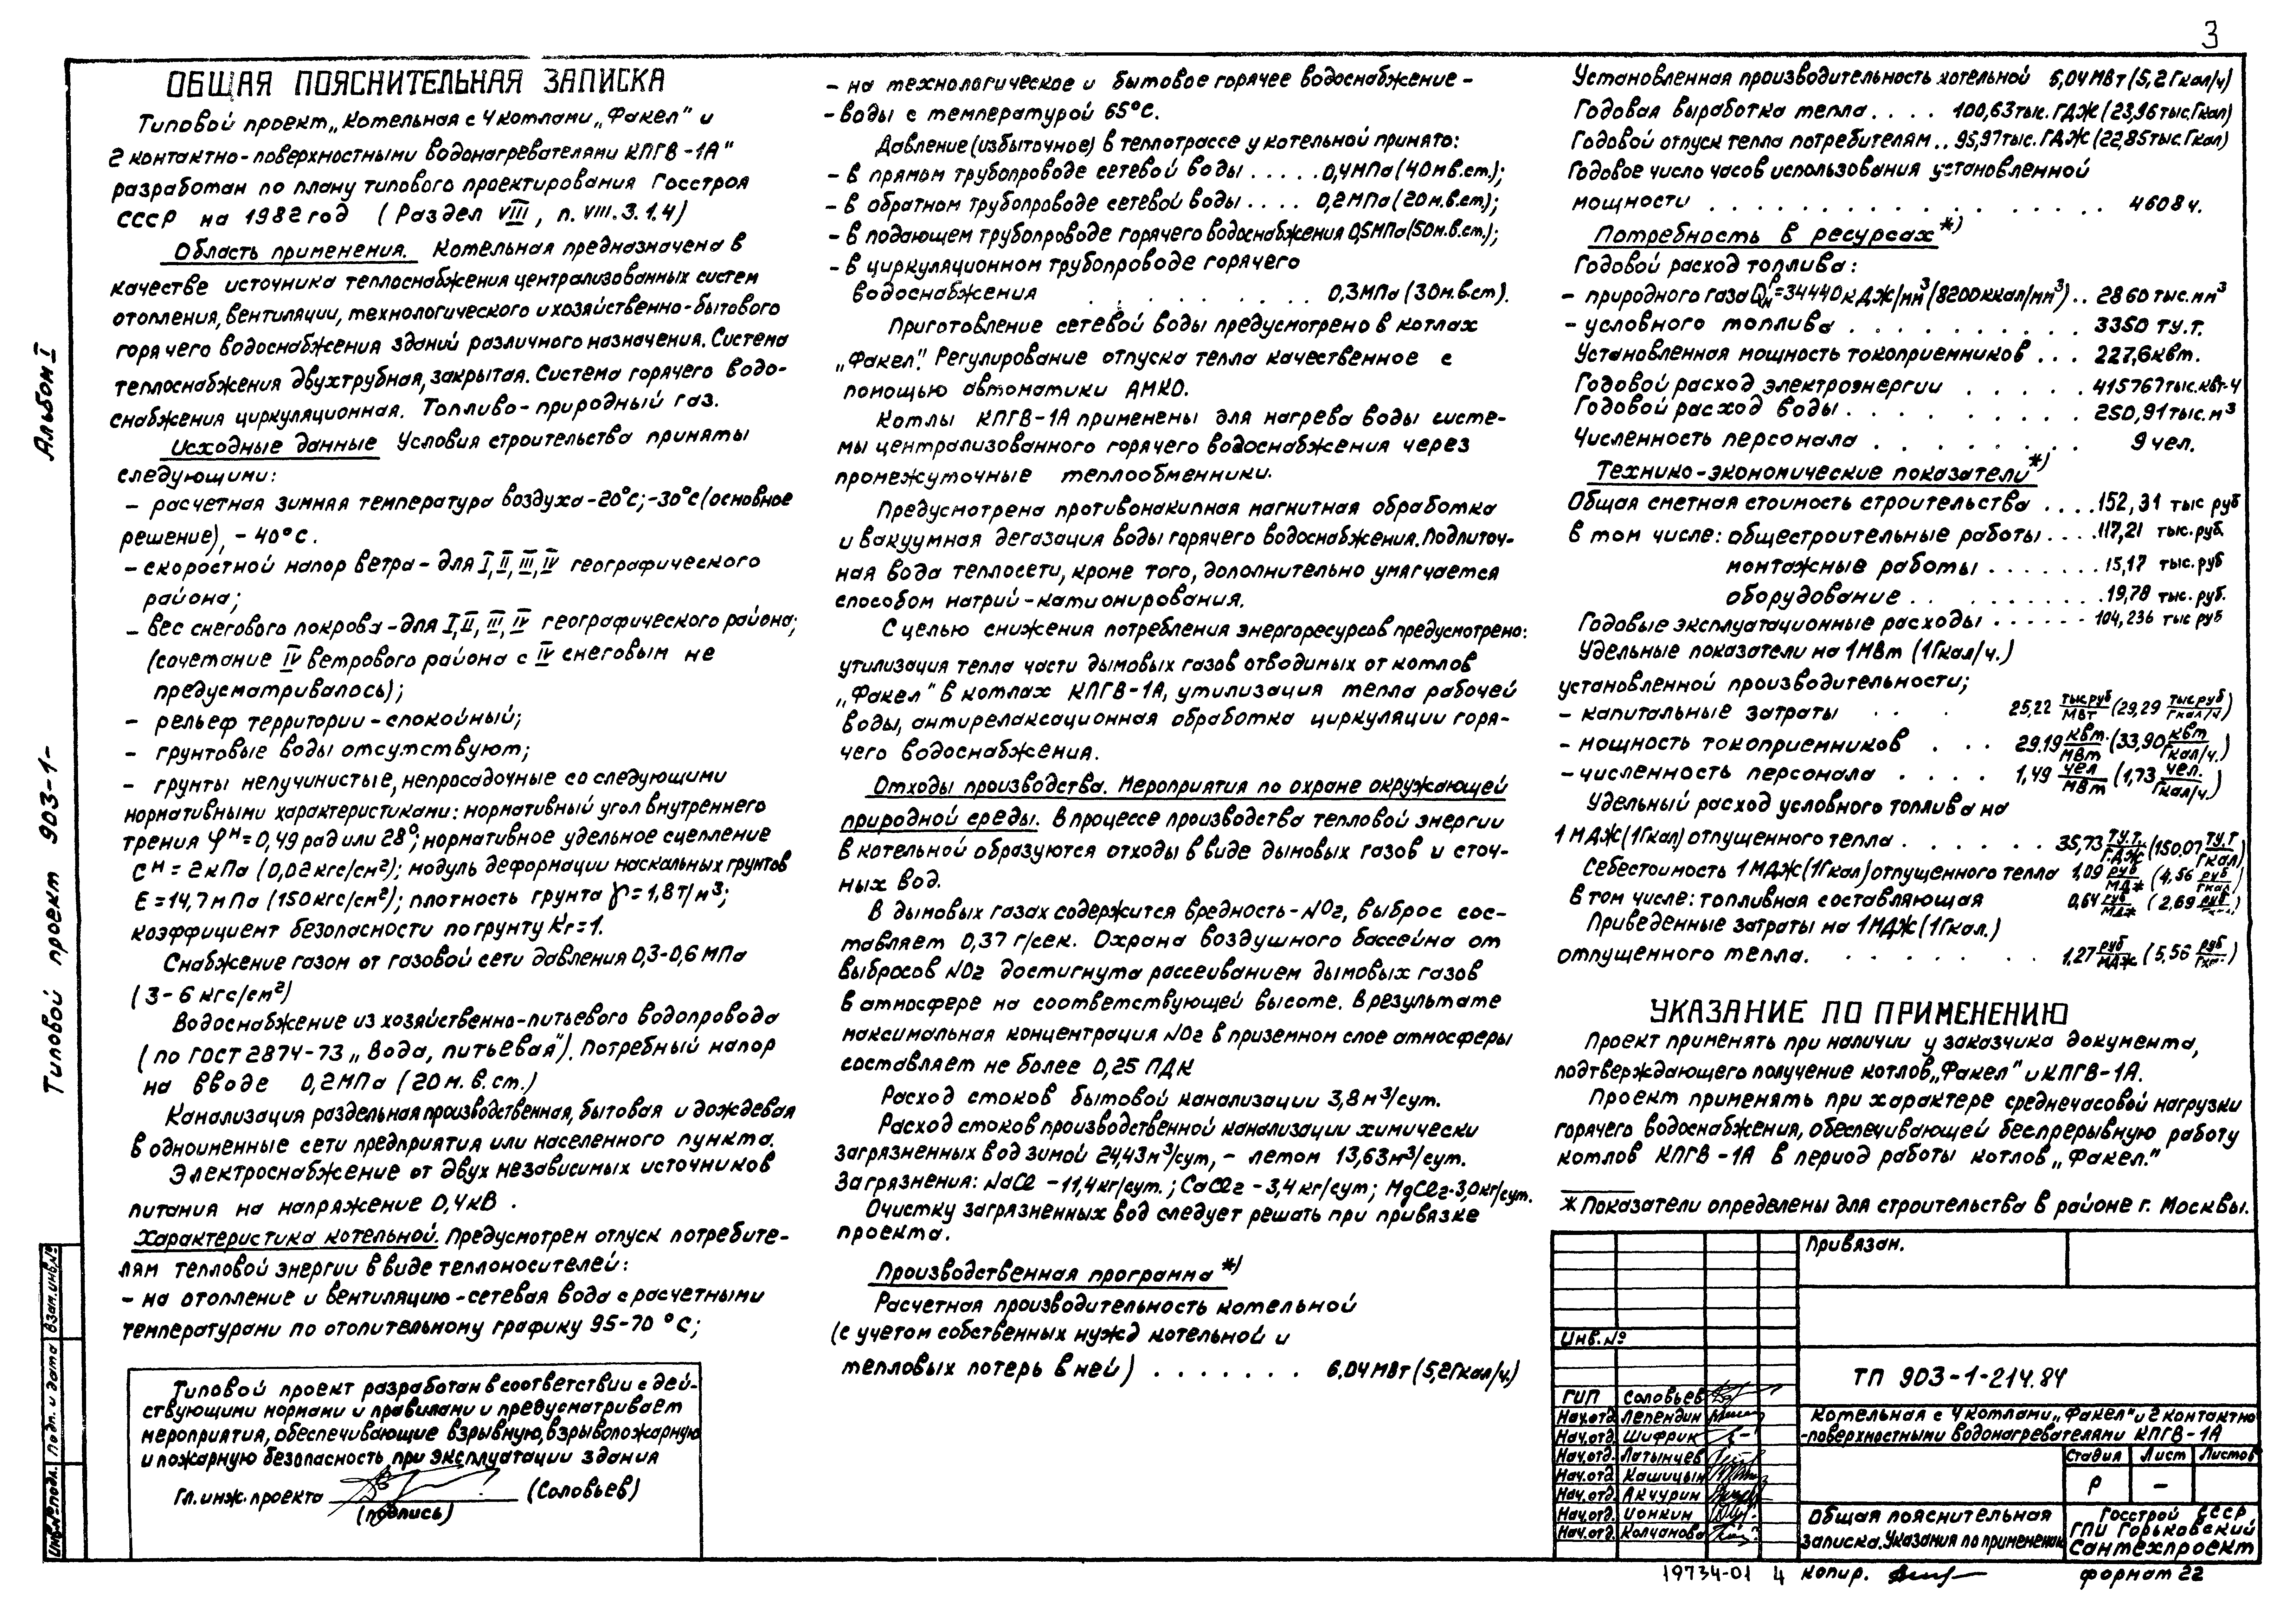 3
ОБЩАЯ ПОЯСНИТЕЛЬНАЯ ЗАПИСКА
Типовой проект „Котельная с 4 котлами „Факел" и
2 контактно-поверхностными водонагревателями КПГВ-1А"
разработан по плану типового проектирования Госстроя
СССР на 1982 год (Раздел VIII, п. VIII.3.1.4)
Область применения. Котельная предназначена в
качестве источника теплоснабжения централизованных систем
отопления, вентиляции, технологического и хозяйственно-бытового
горячего водоснабжения зданий различного назначения. Система
теплоснабжения двухтрубная, закрытая. Система горячего водо-
снабжения циркуляционная. Топливо-природный газ.
Исходные данные Условия строительства приняты
следующими:
- расчетная зимняя температура воздуха -20°С; -30°С (основное
решение), -40°С.
- скоростной напор ветра - для I, II, III, IV географического
района;
- вес снегового покрова - для I, II, III, IV географического района;
(сочетание IV ветрового района с IV снеговым не
предусматривалось);
- рельеф территории - спокойный;
- грунтовые воды отсутствуют;
- грунты непучинистые, непросадочные со следующими
нормативными характеристиками: нормативный угол внутреннего
трения φн = 0,49 рад или 28°; нормативное удельное сцепление
Сн = 2 кПа (0,02 кгс/см²); модуль деформации наскальных грунтов
Е = 14,7 мПа (150 кгс/см²); плотность грунта γ = 1,8 т/м³;
коэффициент безопасности по грунту Кг = 1.
Снабжение газом от газовой сети давления 0,3-0,6 МПа
(3-6 кгс/см²)
Водоснабжение из хозяйственно-питьевого водопровода
(по ГОСТ 2874-73 „Вода, питьевая"). Потребный напор
на вводе 0,2 МПа (20 м. в. ст.)
Канализация раздельная производственная, бытовая и дождевая
в одноименные сети предприятия или населенного пункта.
Электроснабжение от двух независимых источников
питания на напряжение 0,4 кВ.
Характеристика котельной. Предусмотрен отпуск потребите-
лям тепловой энергии в виде теплоносителей:
- на отопление и вентиляцию - сетевая вода с расчетными
температурами по отопительному графику 95-70 °С;
Типовой проект разработан в соответствии с дей-
ствующими нормами и правилами и предусматривает
мероприятия, обеспечивающие взрывную, взрывопожарную
и пожарную безопасность при эксплуатации здания
Гл. инж. проекта (Соловьев)
(подпись)
- на технологическое и бытовое горячее водоснабжение -
- воды с температурой 65°С.
Давление (избыточное) в теплотрассе у котельной принято:
- в прямом трубопроводе сетевой воды ..... 0,4 МПа (40 м в.ст.);
- в обратном трубопроводе сетевой воды .... 0,2 МПа (20 м.в.ст.);
- в подающем трубопроводе горячего водоснабжения 0,5 МПа (50 м.в.ст.);
- в циркуляционном трубопроводе горячего
водоснабжения . . . . . . . . 0,3 МПа (30 м.в.ст).
Приготовление сетевой воды предусмотрено в котлах
„Факел". Регулирование отпуска тепла качественное с
помощью автоматики АМКО.
Котлы КПГВ-1А применены для нагрева воды систе-
мы централизованного горячего водоснабжения через
промежуточные теплообменники.
Предусмотрена противонакипная магнитная обработка
и вакуумная дегазация воды горячего водоснабжения. Подпиточ-
ная вода теплосети, кроме того, дополнительно умягчается
способом натрий-катионирования.
С целью снижения потребления энергоресурсов предусмотрено:
утилизация тепла части дымовых газов отводимых от котлов
„Факел" в котлах КПГВ-1А, утилизация тепла рабочей
воды, антирелаксационная обработка циркуляции горя-
чего водоснабжения.
Отходы производства. Мероприятия по охране окружающей
природной среды. В процессе производства тепловой энергии
в котельной образуются отходы в виде дымовых газов и сточ-
ных вод.
В дымовых газах содержится вредность - NO2, выброс сос-
тавляет 0,37 г/сек. Охрана воздушного бассейна от
выбросов NO2 достигнута рассеиванием дымовых газов
в атмосфере на соответствующей высоте. В результате
максимальная концентрация NO2 в приземном слое атмосферы
составляет не более 0,25 ПДК
Расход стоков бытовой канализации 3,8 м³/сут.
Расход стоков производственной канализации химически
загрязненных вод зимой 24,43 м³/сут, - летом 13,63 м³/сут.
Загрязнения: NaCl - 11,4 кг/сут.; CaCl2 - 3,4 кг/сут; MgCl2 - 3,0 кг/сут.
Очистку загрязненных вод следует решать при привязке
проекта.
Производственная программа *)
Расчетная производительность котельной
(с учетом собственных нужд котельной и
тепловых потерь в ней) . . . . . . . 6.04 МВт (5,2 Гкал/ч.)
Установленная производительность котельной 6,04 МВт (5,2 Гкал/ч)
Годовая выработка тепла .... 100,63 тыс. ГДЖ (23,96 тыс. Гкал)
Годовой отпуск тепла потребителям .. 95,97 тыс. ГДЖ (22,85 тыс. Гкал)
Годовое число часов использования установленной
мощности . . . . . . . . . . . . . . 4608 ч.
Потребность в ресурсах *)
Годовой расход топлива:
- природного газа Qнр = 34440 кДж/нм³ (8200 ккал/нм³) .. 2860 тыс. нм³
- условного топлива . . . . . . . . . . 3350 ту.т.
Установленная мощность токоприемников ... 227,6 квт.
Годовой расход электроэнергии . . . . . . 415767 тыс. квт-ч
Годовой расход воды . . . . . . . . . 250,91 тыс. м³
Численность персонала . . . . . . . . 9 чел.
Технико-экономические показатели *)
Общая сметная стоимость строительства .... 152,31 тыс руб
в том числе: общестроительные работы .... 117,21 тыс. руб.
монтажные работы ....... 15,17 тыс. руб
оборудование .......... 19,78 тыс. руб.
Годовые эксплуатационные расходы ...... 104,236 тыс руб
Удельные показатели на 1 МВт (1 Гкал/ч.)
установленной производительности;
- капитальные затраты . . . 25,22 тыс руб/МВт (29,29 тыс руб/Гкал/ч)
- мощность токоприемников . . . 29.19 квт./МВт (33,90 квт/Гкал/ч.)
- численность персонала . . . . 1,49 чел/МВт (1,73 чел./Гкал/ч.)
Удельный расход условного топлива на
1 МДЖ (1 Гкал) отпущенного тепла . . . . . . 35,73 ту.т./ГДЖ (150.07 ту.т/Гкал)
Себестоимость 1 МДЖ (1 Гкал) отпущенного тепла 1,09 руб/МДЖ (4,56 руб/Гкал)
В том числе: топливная составляющая 0,64 руб/МДЖ (2,69 руб/Гкал)
Приведенные затраты на 1 МДЖ (1 Гкал.)
отпущенного тепла. . . . . . . . 1,27 руб/МДЖ (5,56 руб/Гкал)
УКАЗАНИЕ ПО ПРИМЕНЕНИЮ
Проект применять при наличии у заказчика документа,
подтверждающего получение котлов „Факел" и КПГВ-1А.
Проект применять при характере среднечасовой нагрузки
горячего водоснабжения, обеспечивающей беспрерывную работу
котлов КПГВ-1А в период работы котлов „Факел."
* Показатели определены для строительства в районе г. Москвы.
Привязан.
Инв. №
ТП 903-1-214.84
ГИП Соловьев
Нач.отд. Лепендин
Нач.отд. Шифрик
Нач.отд. Латынцев
Нач.отд. Кашицын
Нач.отд. Акчурин
Нач.отд. Ионкин
Нач.отд. Колчанова
Котельная с 4 котлами „Факел" и 2 контактно
-поверхностными водонагревателями КПГВ-1А
Стадия Лист Листов
Р –
Общая пояснительная
записка. Указания по применению
Госстрой СССР
ГПИ Горьковский
Сантехпроект
19734-01 4 копир. формат 22
Альбом I
Типовой проект 903-1-
Взам. инв. №
Подп. и дата
Инв. № подл.